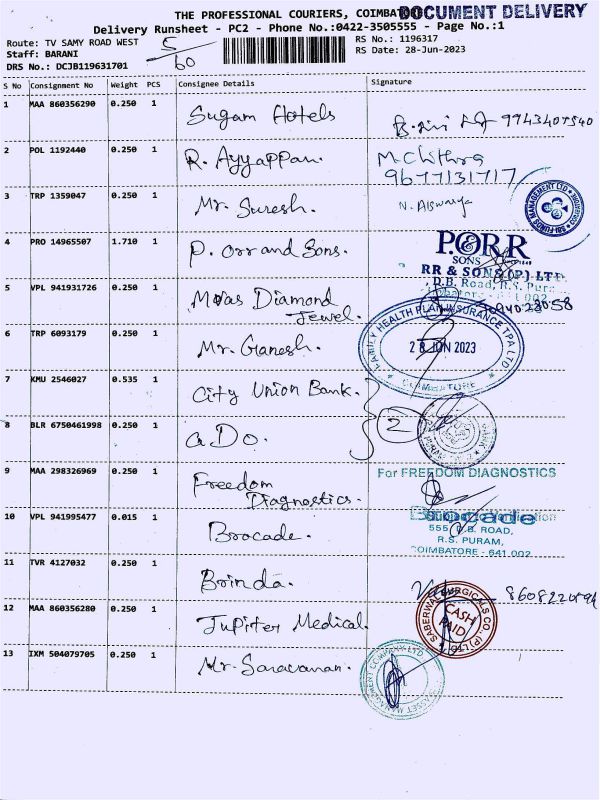 THE PROFESSIONAL COURIERS, COIMBATO
DOCUMENT DELIVERY
Delivery Runsheet - PC2 - Phone No.:0422-3505555 - Page No.:1
Route: TV SAMY ROAD WEST
Staff: BARANI
DRS No.: DCJB119631701
5/60
RS No.: 1196317
RS Date: 28-Jun-2023
S No Consignment No Weight PCS Consignee Details Signature
1 MAA 860356290 0.250 1 Sugam Hotels 9943407540
2 POL 1192440 0.250 1 R. Ayyappan. M. Chithra
9677131717
3 TRP 1359047 0.250 1 Mr. Suresh. N. Aiswarya
SBI FUNDS MANAGEMENT LTD
4 PRO 14965507 1.710 1 P. Orr and Sons.
P&ORR
SONS
RR & SONS (P) LTD
D.B. Road, R.S. Pura
5 VPL 941931726 0.250 1 Diamond
Jewel.
6 TRP 6093179 0.250 1 Mr. Ganesh.
FAMILY HEALTH PLAN INSURANCE TPA LTD
28 JUN 2023
COIMBATORE
7 KMU 2546027 0.535 1 City Union Bank.
8 BLR 6750461998 0.250 1 a Do. 2
9 MAA 298326969 0.250 1 Freedom
Diagnostics.
For FREEDOM DIAGNOSTICS
10 VPL 941995477 0.015 1 Brocade.
Brocade
555, D.B. ROAD,
R.S. PURAM,
COIMBATORE - 641 002
11 TVR 4127032 0.250 1 Brinda.
12 MAA 860356280 0.250 1 Jupiter Medical.
SABERWAL SURGICALS CO (P) L
CASH
PAID
13 IXM 504079705 0.250 1 Mr. Saravanan.